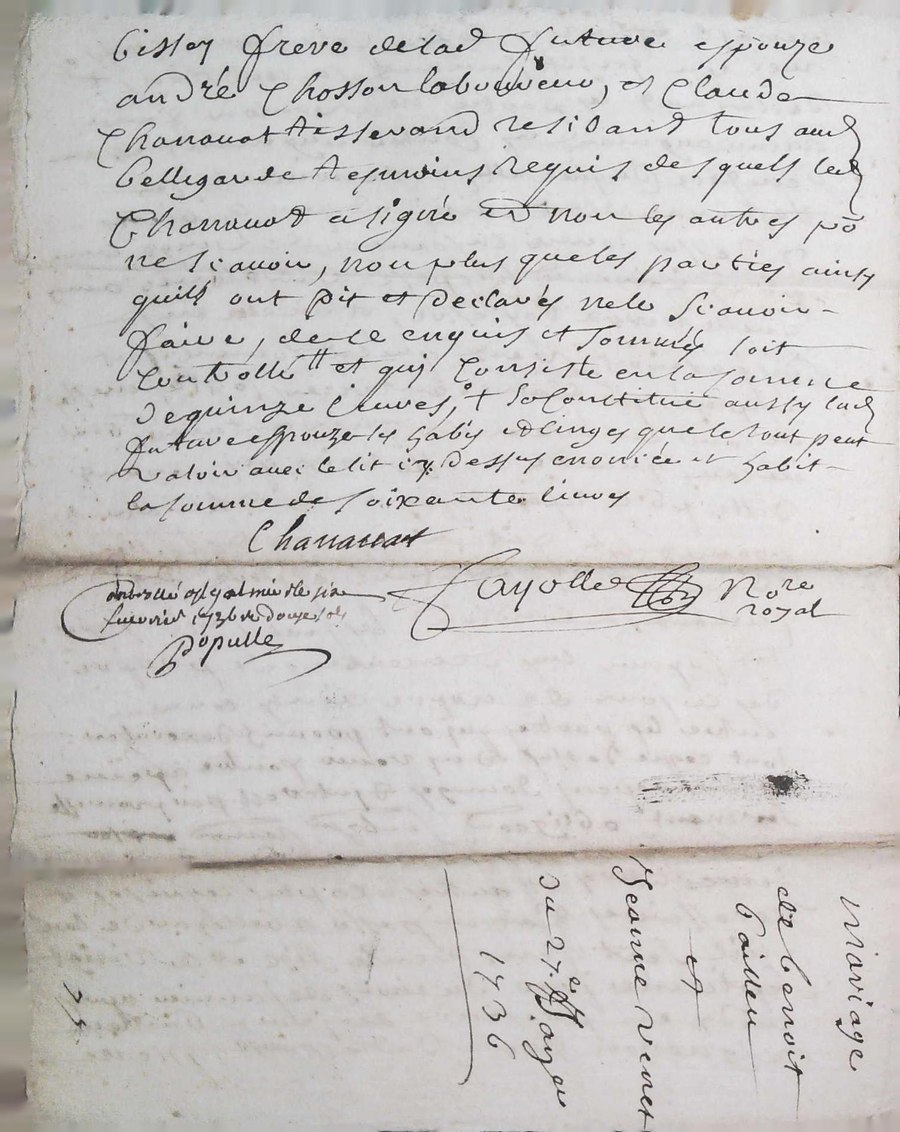 frere de lad future espouze
andré Chosson laboureur, et Claude
Chanauat tisserand residant tous aud
bellegarde tesmoins requis desquels led
Chanauat a signé et non les autres po
ne scauoir, non plus que les parties ainsy
quils ont dit et declarés ne le scauoir
faire, de ce enquis et sommés soit
controllé et qui consiste en la somme
de quinze liures, + se constitue aussy lad
future espouze ses habis et linges que le tout peut
valoir auec le lit cy dessus enoncé et habit
la somme de soixante liures
Chanauat
Fayolle Nore
royal
controllé a le six
feurier 1736 re douze sols
Populle
Mariage
de benoit
et
Jeanne Vinet
du 27e
1736